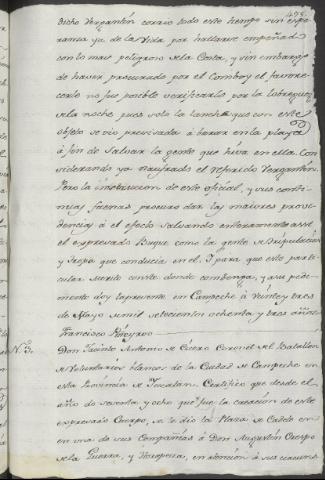 dicho vergantin corrio todo este tiempo sin espe
ranza ya de la vida por hallarse empeñado
con lo mas peligroso de la Costa, y sin embargo
de haver procurado por el Comboy el favore
cerlo no fue posible verificarlo por la lobreguez
de la noche pues solo la lancha que con este
objeto se vio precisada à barar en la playa
à fin de salvar la gente que hiva en ella con
siderando ya naufrado el referido vergantin.
Pero la instruccion de este oficial, y sus conti
nuas faenas procuro dar las maiores provi
dencias à el efecto salvando enteramente assi
el expresado Buque como la gente de tripulacion
y tropa que conducia en el. Y para que este parti
cular merito conste donde combenga, y a su pedi
mento doy la presente en Campeche à veinte y tres
de Mayo de mil setecientos ochenta y tres años
Francisco Piñeyro
Nº 3.
Don Jacinto Antonio de Coronel del Batallon
de Voluntarios blancos de la Ciudad de Campeche en
esta Provincia de Yucatan. Certifico que desde el
año de setenta y ocho que fue la creacion de este
expresado Cuerpo, se le dio la Plaza de Cadete en
en una de sus Compañias à Don Augustin Crespo
de la Guerra, y en atencion à sus circuns